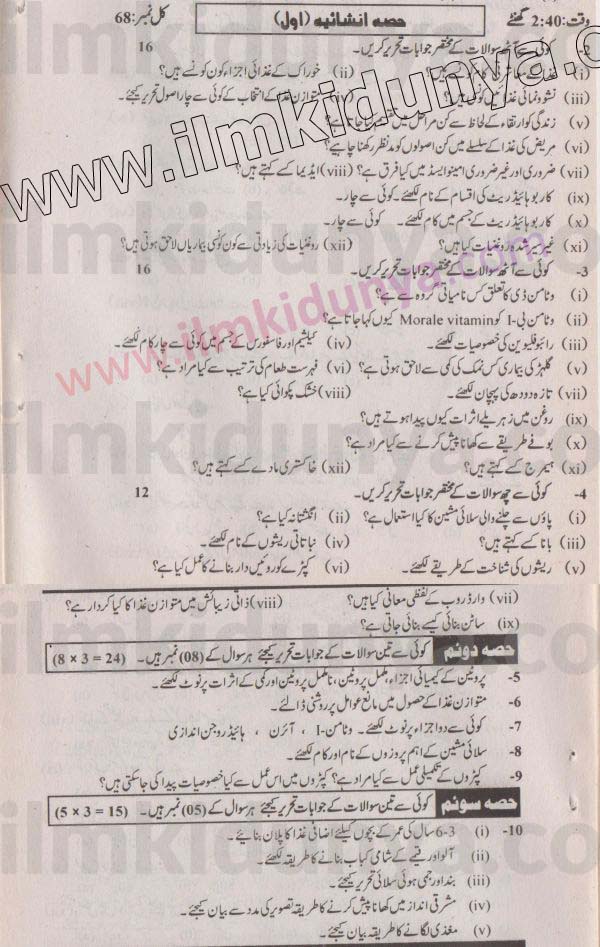 وقت: 2:40 گھنٹے حصہ انشائیہ (اول) کل نمبر: 68
2- کوئی سے آٹھ سوالات کے مختصر جوابات تحریر کریں۔ 16
(i) (ii) خوراک کے غذائی اجزاء کون کونسے ہیں؟
(iii) نشوونمائی غذائیں کونسی ہیں؟ (iv) متوازن غذا کے انتخاب کے کوئی سے چار اصول تحریر کیجئے۔
(v) زندگی کو ارتقاء کے لحاظ سے کن مراحل میں تقسیم کیا جاتا ہے؟
(vi) مریض کی غذا کے سلسلے میں کن اصولوں کو مدنظر رکھنا چاہیے؟
(vii) ضروری اور غیر ضروری امینو ایسڈ میں کیا فرق ہے؟ (viii) ایڈیما کسے کہتے ہیں؟
(ix) کاربوہائیڈریٹ کی اقسام کے نام لکھئے۔ کوئی سے چار۔
(x) کاربوہائیڈریٹ کے جسم میں کام لکھئے۔ کوئی سے چار۔
(xi) غیر سیر شدہ روغنیات کیا ہیں؟ (xii) روغنیات کی زیادتی سے کون کونسی بیماریاں لاحق ہوتی ہیں؟
3- کوئی سے آٹھ سوالات کے مختصر جوابات تحریر کریں۔ 16
(i) وٹامن ڈی کا تعلق کس نامیاتی گروہ سے ہے؟
(ii) وٹامن بی-I کو Morale vitamin کیوں کہا جاتا ہے؟
(iii) رائبوفلیوین کی خصوصیات لکھئے۔ (iv) کیلشیم اور فاسفورس کے جسم میں کوئی سے چار کام لکھئے۔
(v) گلہڑ کی بیماری کس نمک کی کمی سے لاحق ہوتی ہے؟ (vi) فہرست طعام کی ترتیب سے کیا مراد ہے؟
(vii) تازہ دودھ کی پہچان لکھئے۔ (viii) خشک پکوائی کیا ہے؟
(ix) روغن میں زہریلے اثرات کیوں پیدا ہوتے ہیں؟
(x) بوفے طریقے سے کھانا پیش کرنے سے کیا مراد ہے؟
(xi) ہیمرج کسے کہتے ہیں؟ (xii) خاکستری مادے کسے کہتے ہیں؟
4- کوئی سے چھ سوالات کے مختصر جوابات تحریر کریں۔ 12
(i) پاؤں سے چلنے والی سلائی مشین کا کیا استعمال ہے؟ (ii) انگشتانہ کیا ہے؟
(iii) بانا کسے کہتے ہیں؟ (iv) نباتاتی ریشوں کے نام لکھئے۔
(v) ریشوں کی شناخت کے طریقے لکھئے۔ (vi) کپڑے کو روئیں دار بنانے کا عمل کیا ہے؟
(vii) وارڈ روب کے لفظی معانی کیا ہیں؟ (viii) ذاتی زیبائش میں متوازن غذا کا کیا کردار ہے؟
(ix) ساٹن بنائی کیسے بنائی جاتی ہے؟
حصہ دوئم کوئی سے تین سوالات کے جوابات تحریر کیجئے ہر سوال کے (08) نمبر ہیں۔ (8 × 3 = 24)
5- پروٹین کے کیمیائی اجزاء، مکمل پروٹین، نامکمل پروٹین اور کمی کے اثرات پر نوٹ لکھئے۔
6- متوازن غذا کے حصول میں مانع عوامل پر روشنی ڈالئے۔
7- کوئی سے دو اجزاء پر نوٹ لکھئے۔ وٹامن-I ، آئرن ، ہائیڈروجن اندازی
8- سلائی مشین کے اہم پرزوں کے نام اور کام لکھئے۔
9- کپڑوں کے تکمیلی عمل سے کیا مراد ہے؟ کپڑوں میں اس عمل سے کیا خصوصیات پیدا کی جا سکتی ہیں؟
حصہ سوئم کوئی سے تین سوالات کے جوابات تحریر کیجئے ہر سوال کے (05) نمبر ہیں۔ (5 × 3 = 15)
10- (i) 3-6 سال کی عمر کے بچوں کیلئے اضافی غذا کا پلان بنائیے۔
(ii) آلو اور قیمے کے شامی کباب بنانے کا طریقہ لکھئے۔
(iii) بند اور جمی ہوئی سلائی تحریر کیجئے۔
(iv) مشرقی انداز میں کھانا پیش کرنے کا طریقہ تصویر کی مدد سے بیان کیجئے۔
(v) مغذی لگانے کا طریقہ بیان کیجئے۔
www.ilmkidunya.com
www.ilmkidunya.com